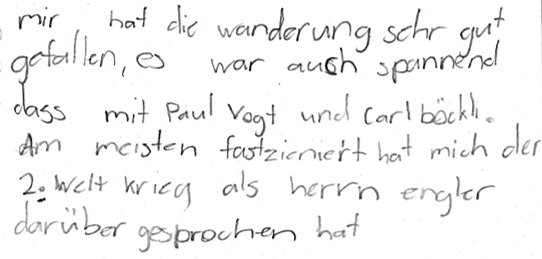 mir hat die wanderung sehr gut
gefallen, es war auch spannend
dass mit Paul Vogt und Carl böckli.
Am meisten fastzieniert hat mich der
2. Welt krieg als herrn engler
darüber gesprochen hat